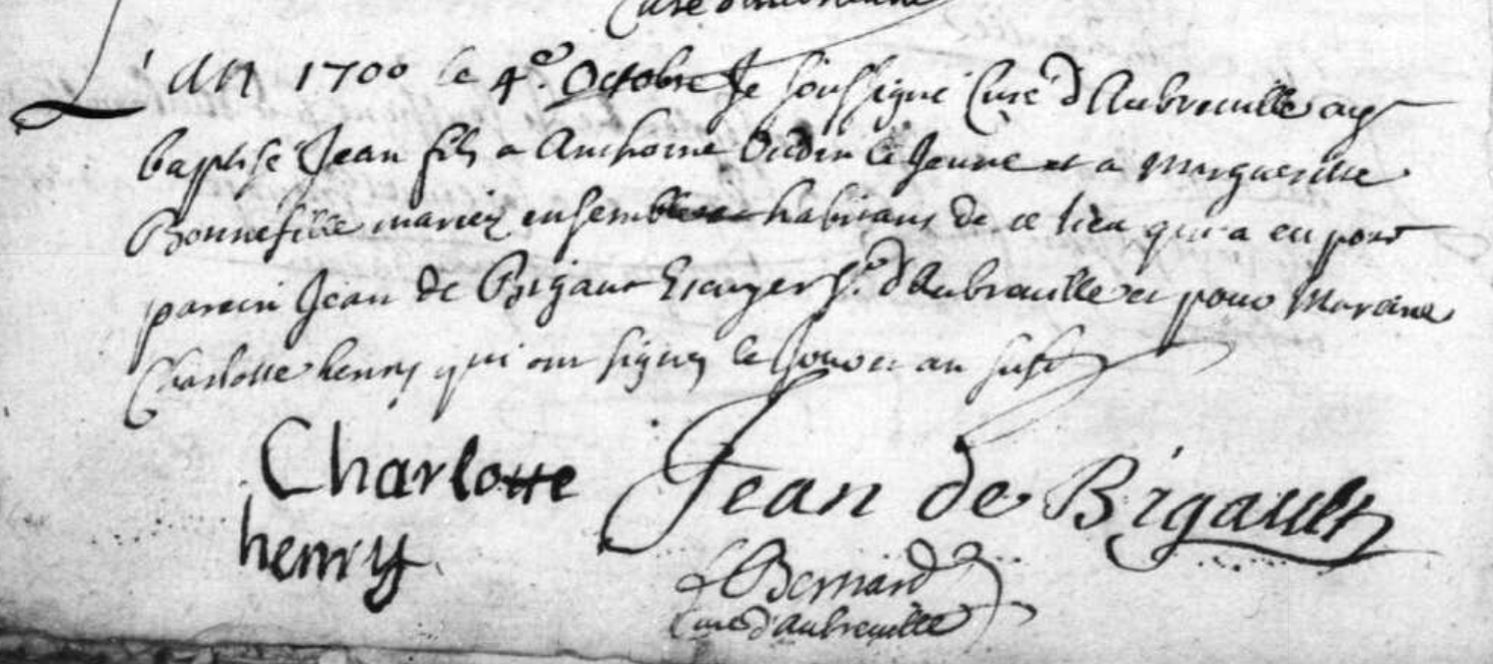 Curé d'Aubreuille
L'an 1700 le 4e. Octobre Je soussigné Curé d'Aubreuille ay
baptisé Jean fils a Anthoine Oudin le Jeune et a Margueritte
Bonnefille mariez ensemble habitans de ce lieu qui a eu pour
parein Jean de Bigaut Escuyer Sr. d'Aubreuille et pour Mareine
Charlotte henry qui ont signez le Jour et an susd
Charlotte Jean de Bigault
henry
Bernard
Curé d'Aubreuille